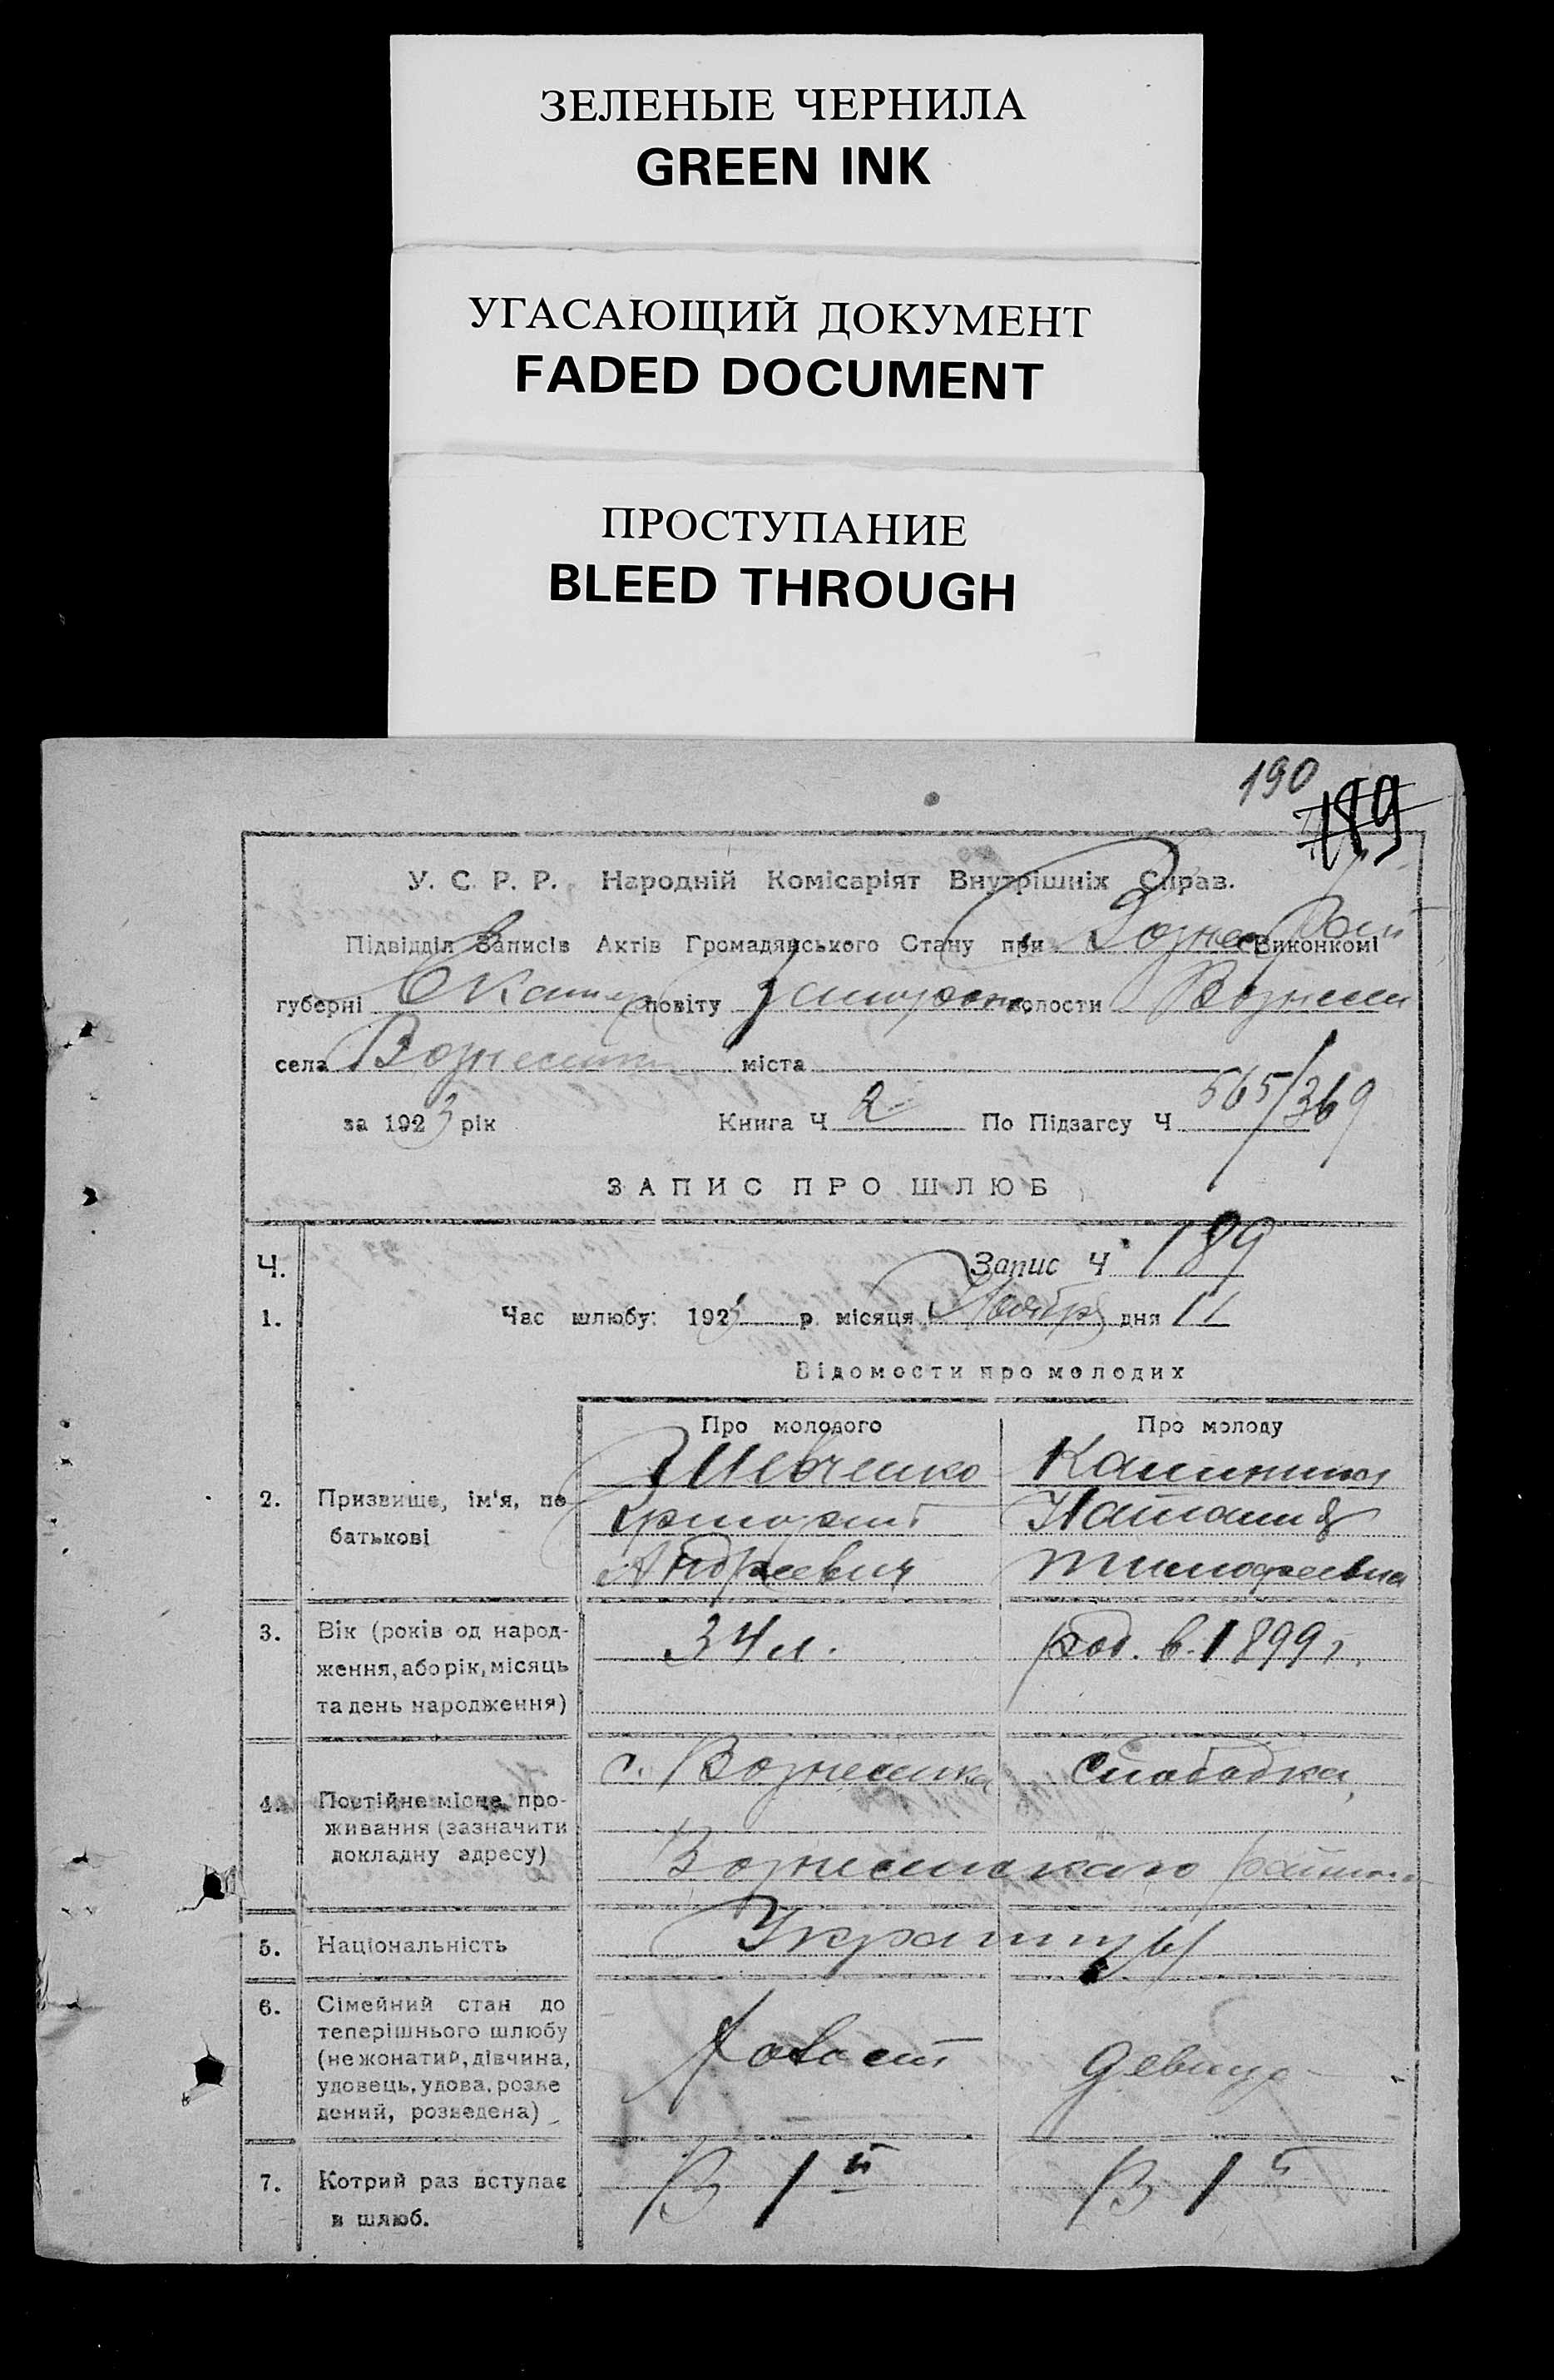 ЗЕЛЕНЫЕ ЧЕРНИЛА
GREEN INK
УГАСАЮЩИЙ ДОКУМЕНТ
FADED DOCUMENT
ПРОСТУПАНИЕ
BLEED THROUGH
190
189
У. С. Р. Р. Народній Комісаріят Внутрішніх Справ.
Підвідділ Записів Актів Громадянського Стану при Вознес Рай Виконкомі
губерні Екатер повіту Запорож волости Вознесен
села Вознесенка міста
за 1923 рік Книга Ч 2 По Підзагсу Ч 565/369
ЗАПИС ПРО ШЛЮБ
Ч. Запис Ч 189
1. Час шлюбу: 1923 р місяця Ноября дня 11
Відомости про молодих
Про молодого Про молоду
Шевченко
2. Призвище, ім'я, по Наталия
батькові
Андреевич Тимофеевна
3. Вік (років од народ- 34 л. род. в. 1899 г.
ження, або рік, місяць
та день народження)
с. Вознесенка Слободка
4. Постійне місце про-
живання (зазначити
докладну адресу) Вознесенскаго района
5. Національність Украинцы
6. Сімейний стан до
теперішнього шлюбу
(не жонатий, дівчина, Холост девица
удовець, удова, розве
дений, розведена)
7. Котрий раз вступає В 1й В 1й
в шлюб.